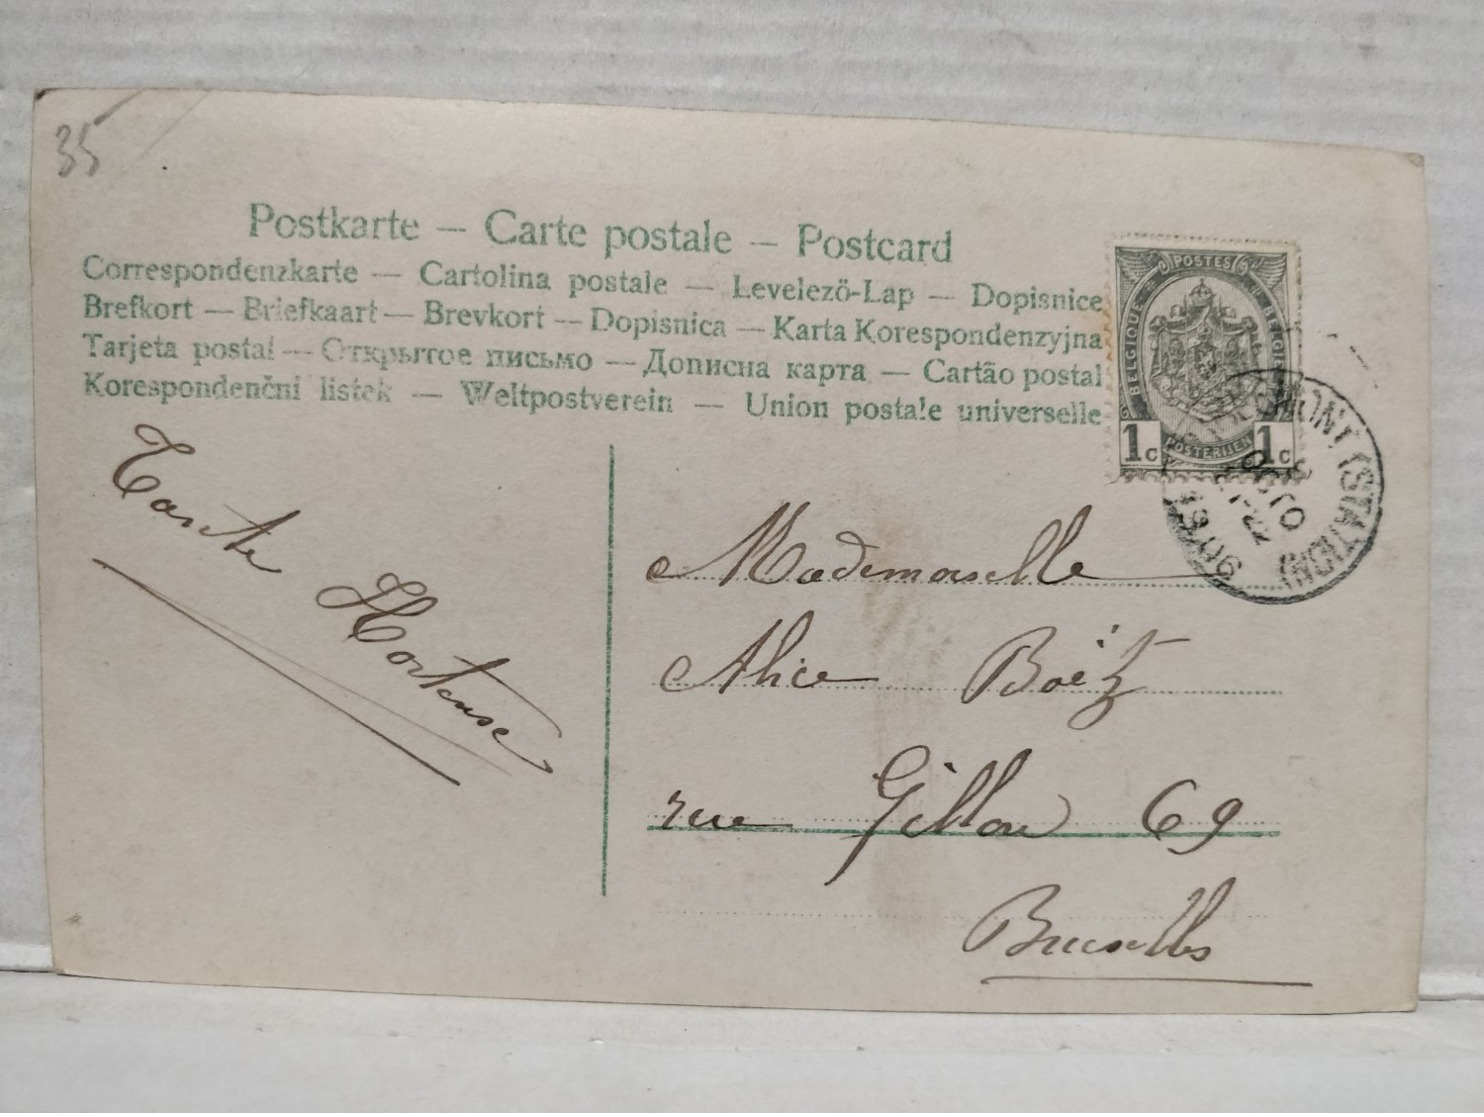 35
Postkarte — Carte postale — Postcard
Correspondenzkarte — Cartolina postale — Levelezö-Lap — Dopisnice
Brefkort — Briefkaart — Brevkort — Dopisnica — Karta Korespondenzyjna
Tarjeta postal — Открытое письмо — Дописна карта — Cartão postal
Korespondenční listek — Weltpostverein — Union postale universelle
POSTES
BELGIQUE
BELGIE
POSTERIJEN
1c 1c
(STATION)
Tante Hortense
Mademoiselle
Alice Boëtz
rue Gillon 69
Bruxelles